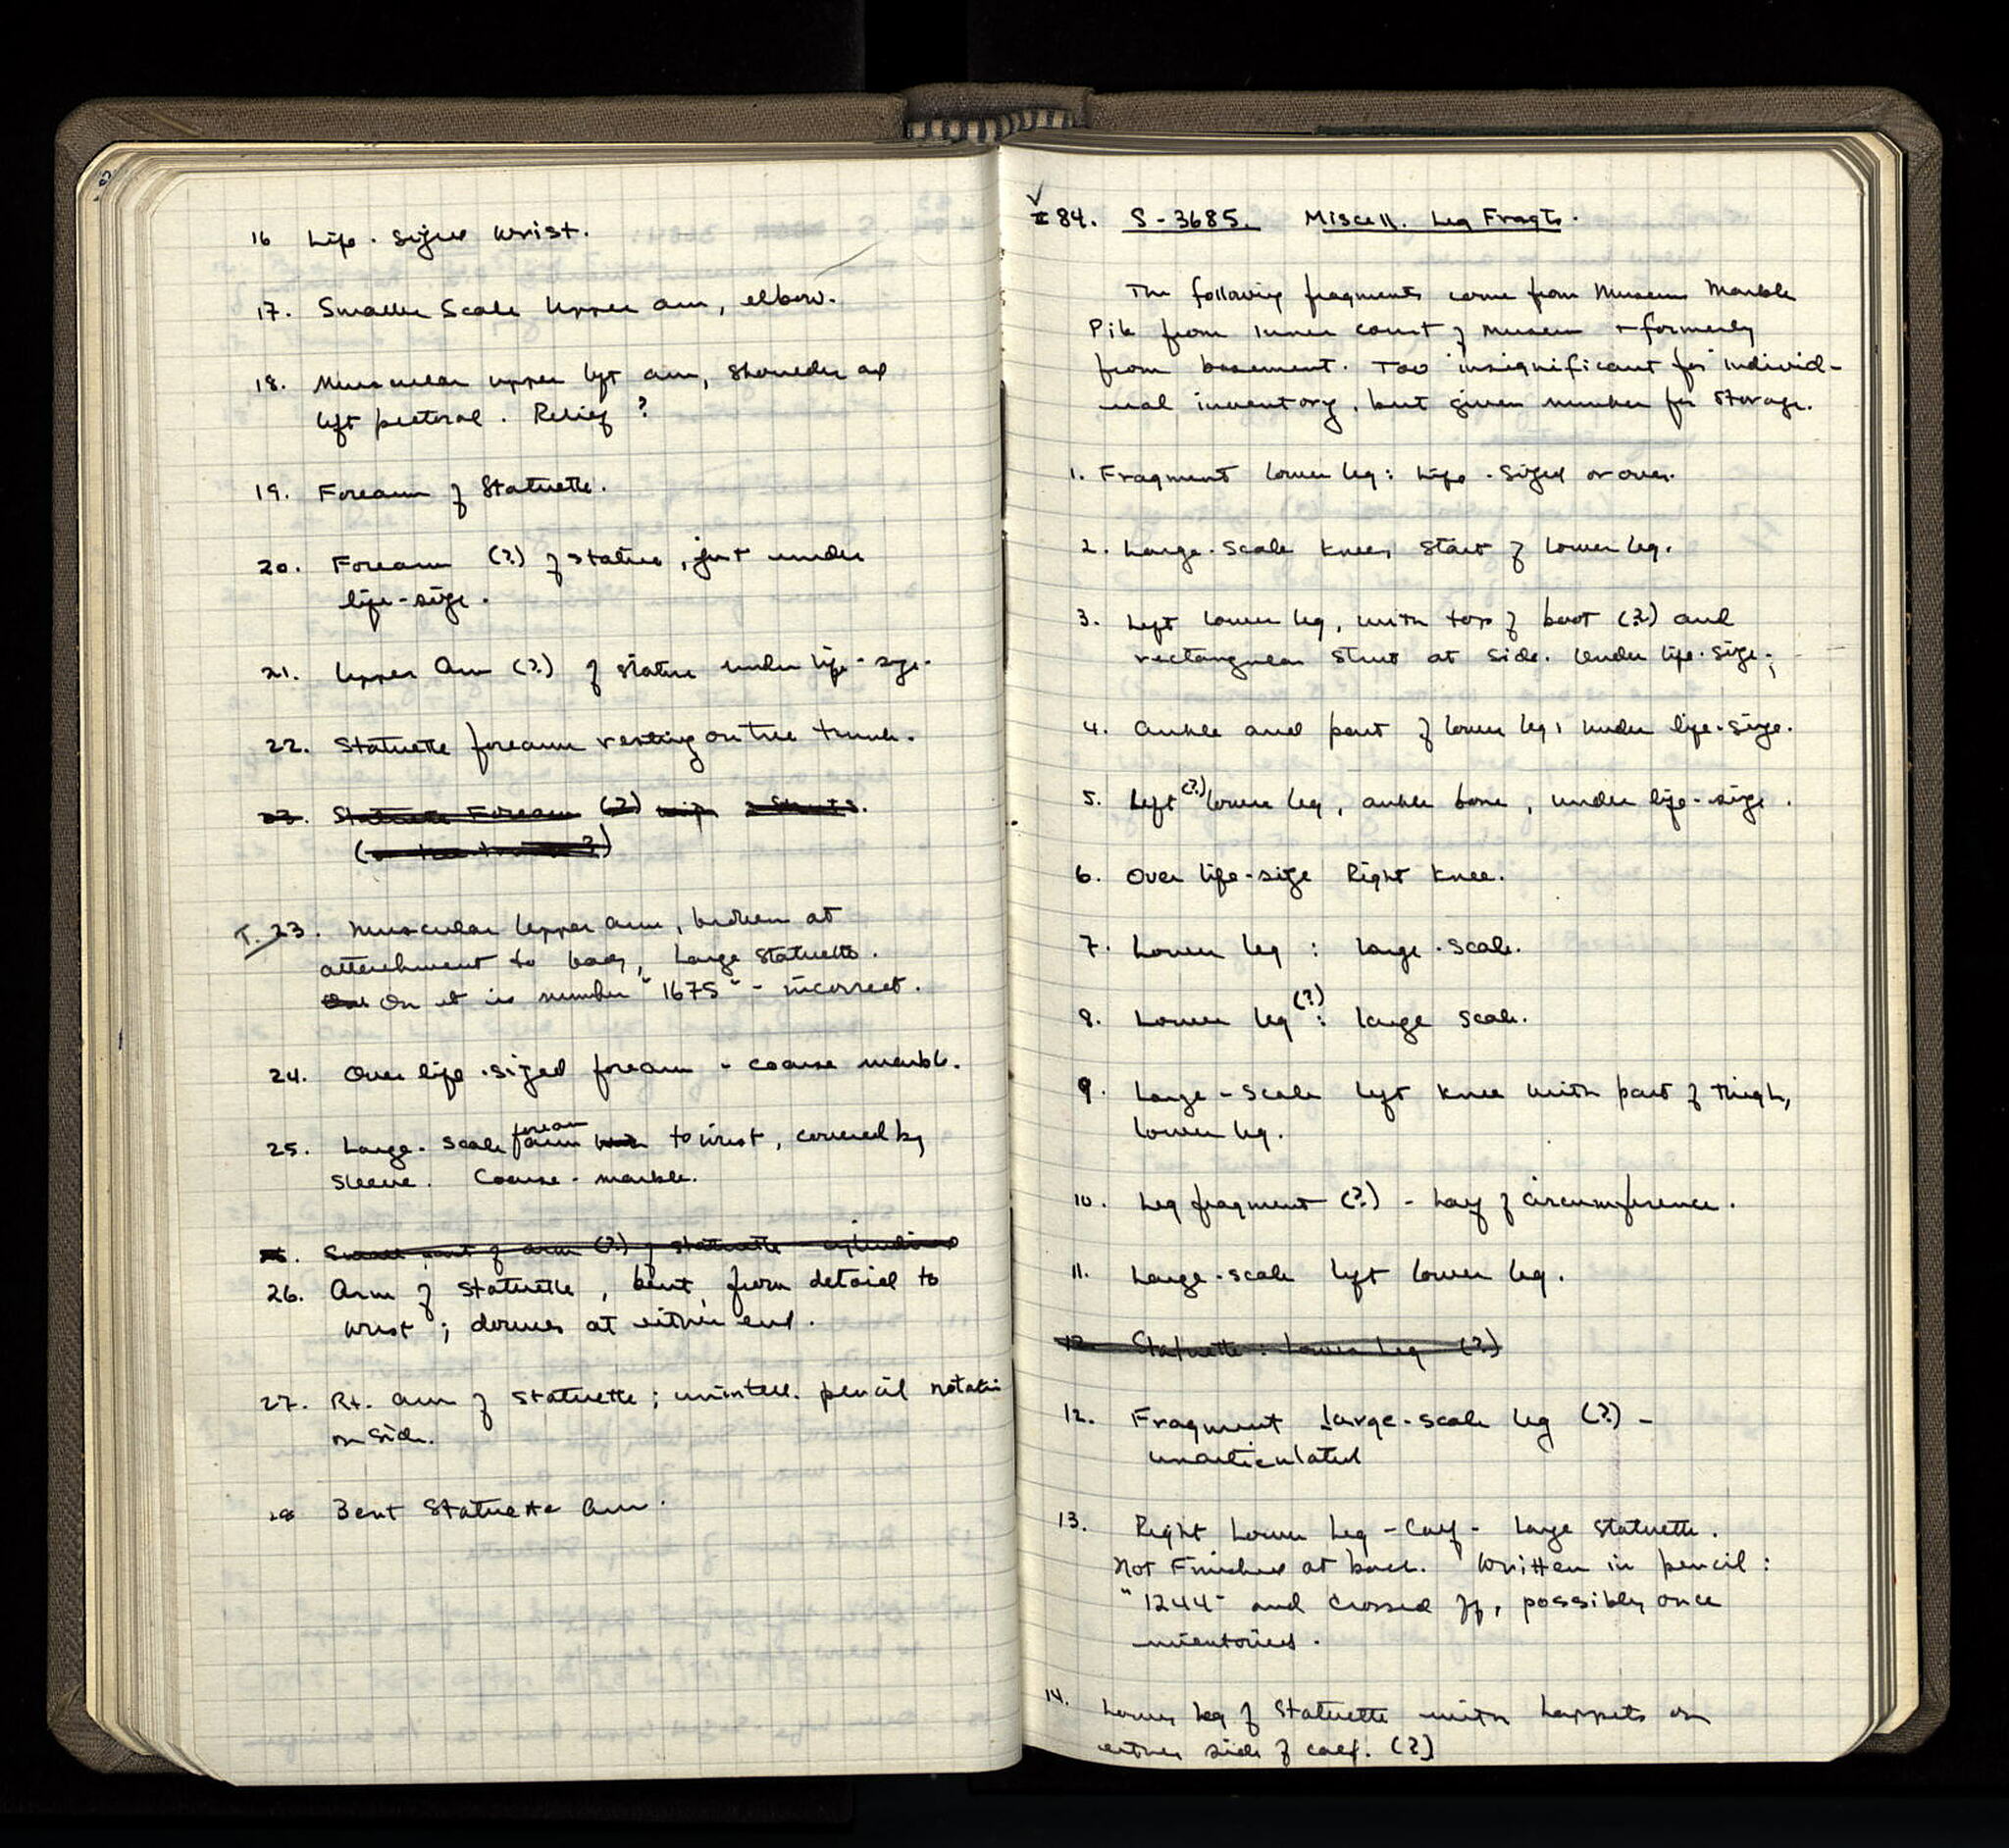 16 Life-sized wrist.
17. Smaller Scale Upper arm, elbow.
18. Muscular upper left arm, shoulder and
left pectoral. Relief?
19. Forearm of Statuette.
20. Forearm (?) of statue, just under
life-size.
21. Upper Arm (?) of statue under life-size.
22. Statuette forearm resting on tree trunk.
23. Statuette Forearm (?) with 2 struts.
(or tree trunk?)
T. 23. Muscular Upper arm, broken at
attachment to body, Large Statuette.
On it is number "1675" - incorrect.
24. Over life-sized forearm - coarse marble.
25. Large-scale forearm to wrist, covered by
sleeve. Coarse-marble.
26. Small part of arm (?) of statuette - cylindrical
26. Arm of Statuette, bent, from deltoid to
wrist; dowels at either end.
27. Rt. arm of Statuette; unintell. pencil notation
on side.
28 Bent Statuette Arm.
84. S-3685. Miscell. Leg Fragts.
The following fragments come from Museum Marble
Pile from inner court of Museum & formerly
from basement. Too insignificant for individ-
ual inventory, but given number for storage.
1. Fragment lower leg: Life-sized or over.
2. Large-Scale knee, start of lower leg.
3. Left lower leg, with top of boot (?) and
rectangular strut at side. Under life-size.
4. Ankle and part of lower leg, under life-size.
5. Left (?) lower leg, ankle bone, under life-size.
6. Over life-size Right knee.
7. Lower leg: large-scale.
8. Lower leg (?): large scale.
9. Large-Scale left knee with part of thigh,
lower leg.
10. Leg fragment (?) - half of circumference.
11. Large-scale left lower leg.
12. Statuette: Lower Leg (?)
12. Fragment large-scale leg (?) -
unarticulated
13. Right Lower Leg - Calf - large statuette.
Not Finished at back. Written in pencil:
"1244" and crossed off, possibly once
inventoried.
14. Lower Leg of Statuette with lappets on
either side of calf. (?)